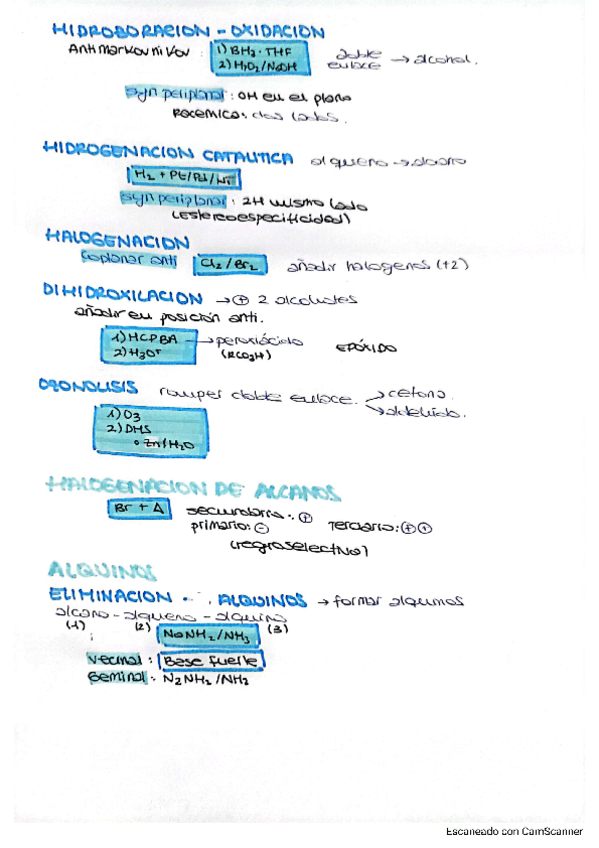 HIDROBORACION - OXIDACION
Antimarkovnikov : 1) BH3 · THF
2) H2O2/NaOH
doble enlace → alcohol.
syn periplanar : OH en el plano
Racemico: dos lados.
HIDROGENACION CATALITICA alqueno → alcano
H2 + Pt/Pd/Ni
syn periplanar : 2H mismo lado
(estereoespecificidad)
HALOGENACION
coplanar anti Cl2/Br2 añadir halogenos (+2)
DIHIDROXILACION → ⊕ 2 alcoholes
añadir en posición anti.
1) MCPBA → peroxiácido
2) H3O+ (RCO3H) EPÓXIDO
OZONOLISIS romper doble enlace. → cetona.
→ aldehído.
1) O3
2) DMS
o Zn/H2O
HALOGENACION DE ALCANOS
Br + Δ secundario: ⊕
primario: ⊖ Terciario: ⊕⊕
(regioselectivo)
ALQUINOS
ELIMINACION ALQUINOS → formar alquinos
alcano - alqueno - alquino
(1) (2) (3)
NaNH2/NH3
vecinal : Base fuerte
Geminal : N2NH2/NH2
Escaneado con CamScanner